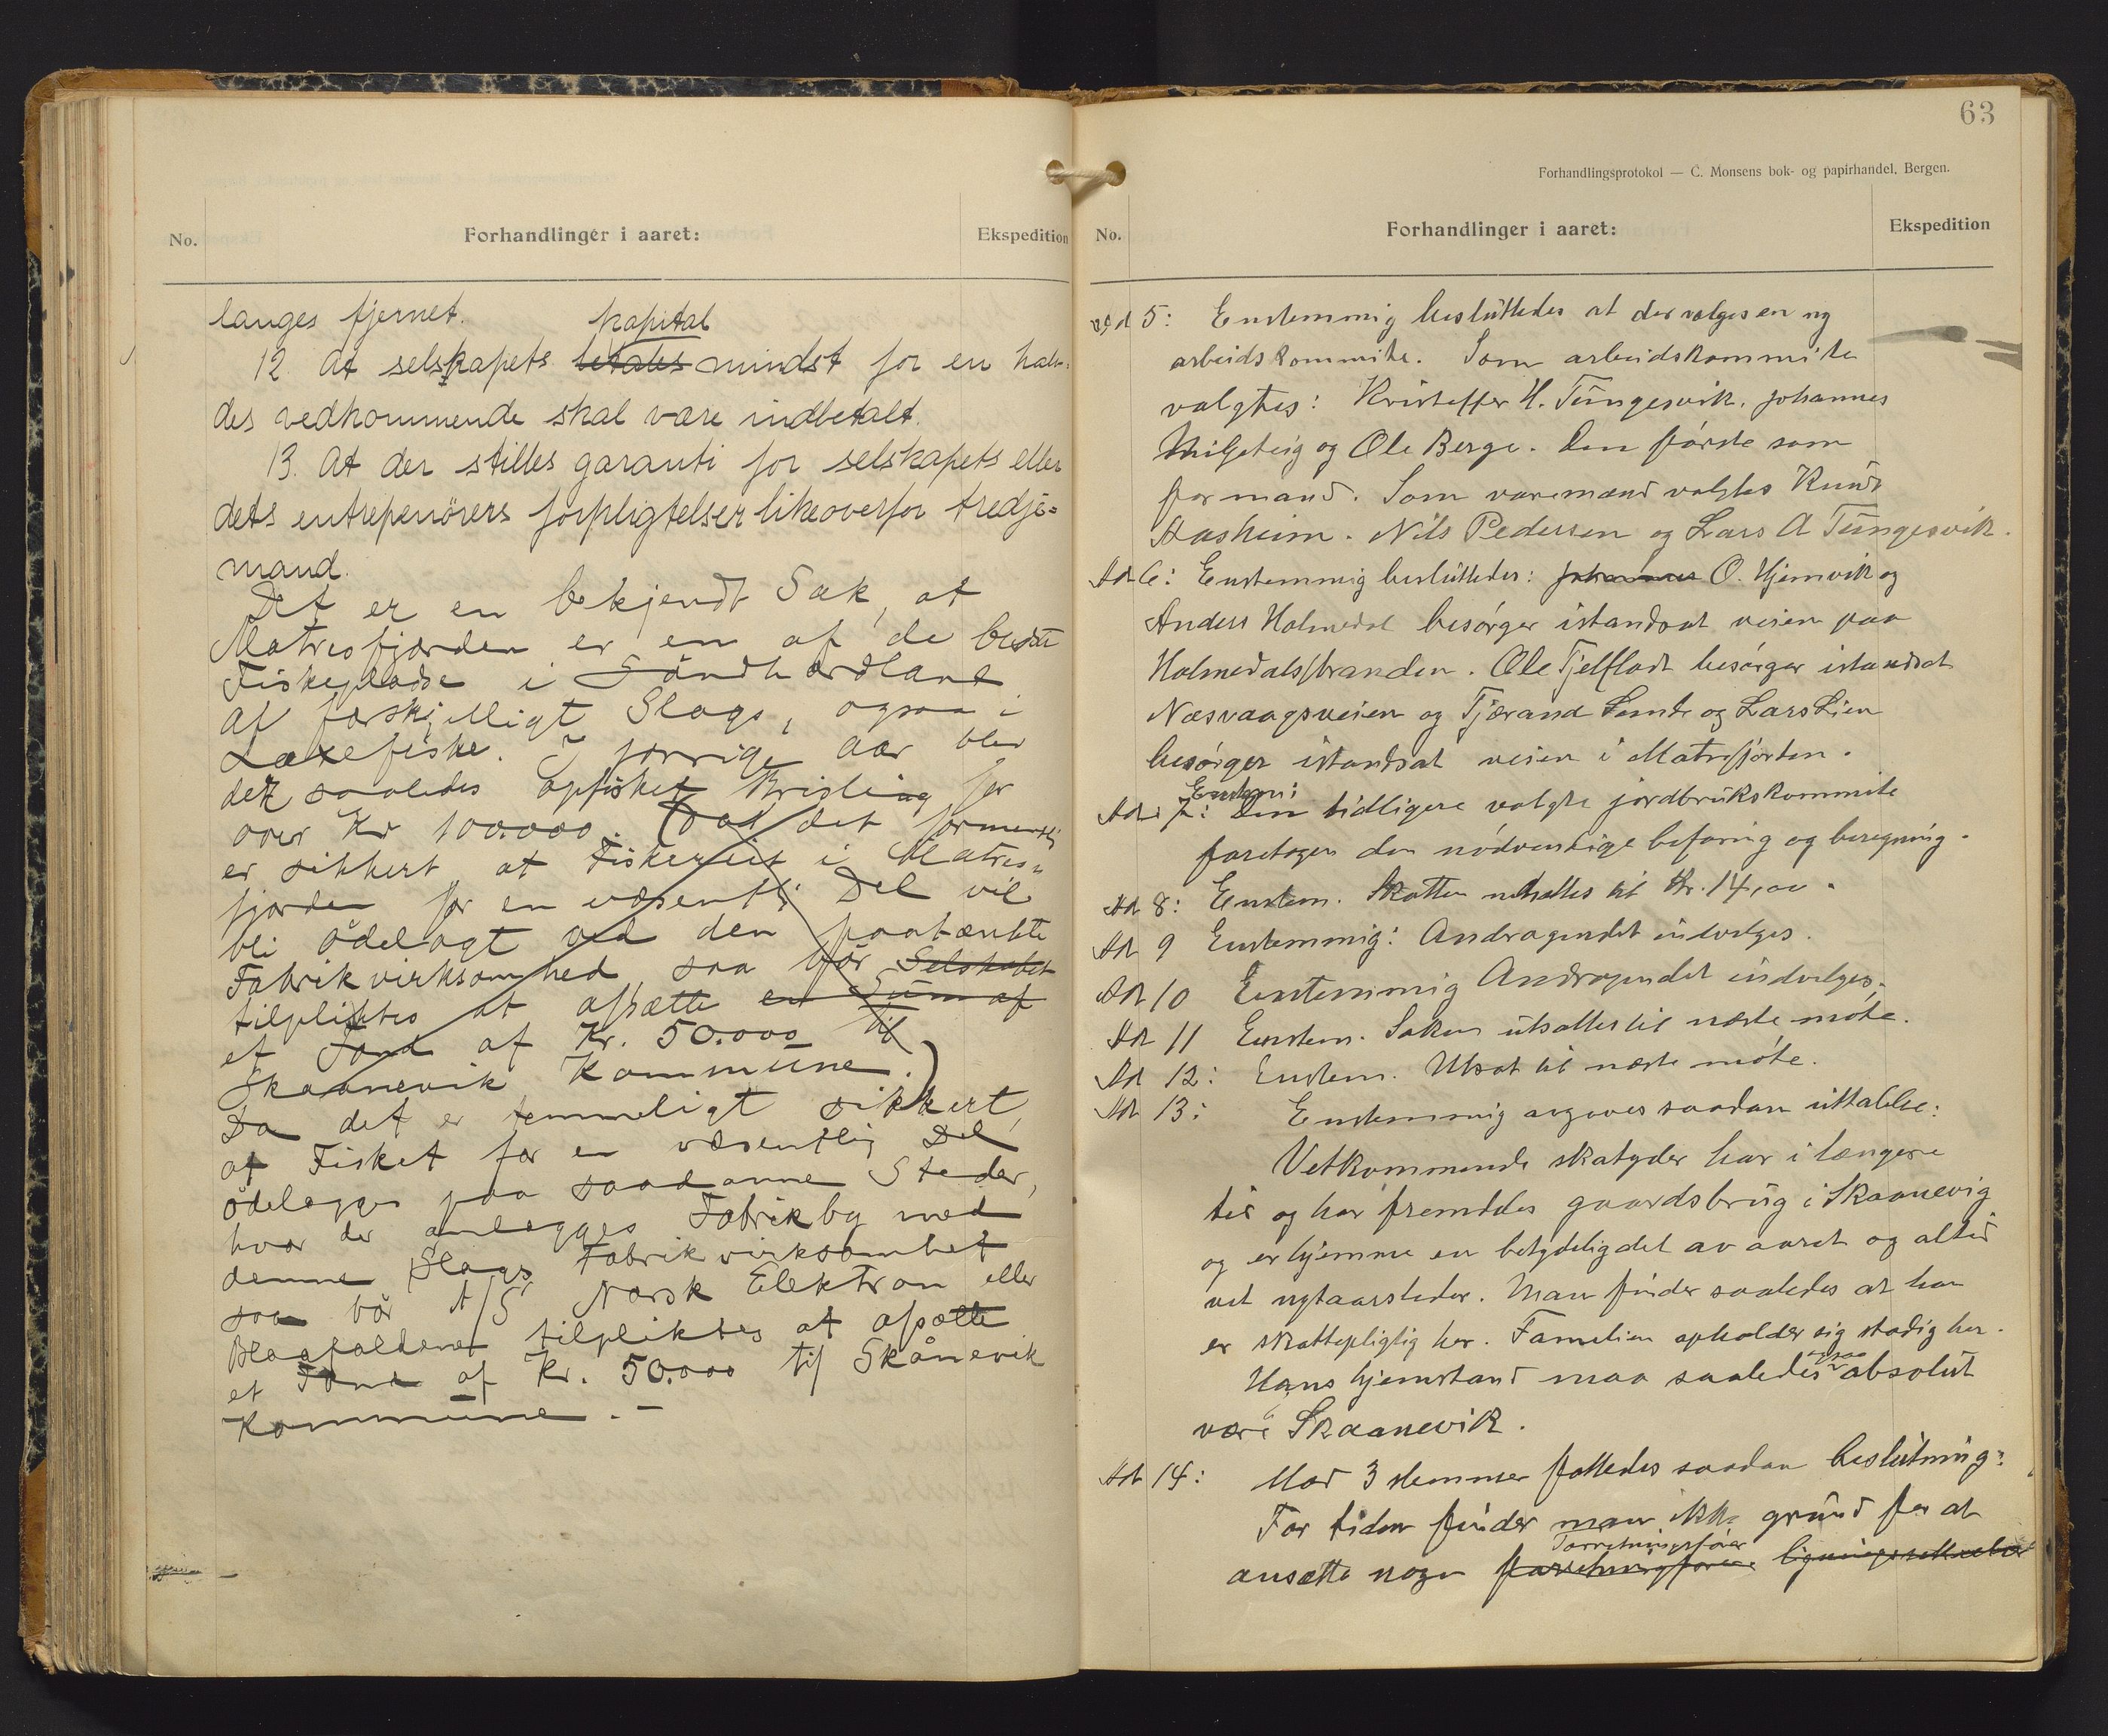 No. Forhandlinger i aaret: Ekspedition
langes fjernet.
kapital
12. At selskapets betales mindst for en halv-
des vedkommende skal være indbetalt.
13. At der stilles garanti for selskapets eller
dets entrepenörers forpligtelser likeoverfor tredje=
mand.
Det er en bekjendt Sak, at
Matresfjorden er en af de beste
Fiskepladse i Söndhordland
af forskjelligt Slags, ogsaa i
Laxefiske. I forrige Aar blev
det saaledes opfisket Brisling for
over Kr 100.000. (Dad det formentlig
er sikkert at Fiskeriet i Matres-
fjorden for en væsentlig Del vil
bli ödelagt ved den paatænkte
Fabrikvirksomhed saa bör Selskabet
tilpliktes at afsætte en Sum af
et Fond af Kr. 50.000 til
Skaanevik Kommune.)
Da det er temmeligt sikkert,
at Fisket for en væsentlig Del
ödelegges paa saadanne Steder,
hvor der anlægges Fabrikby med
denne Slags Fabrikvirksomhet
saa bör A/S Norsk Elektron eller
Blaafaldene tilpliktes at afsætte
et Fond af Kr. 50.000 til Skånevik
Kommune. –
63
Forhandlingsprotokol — C. Monsens bok- og papirhandel, Bergen.
No. Forhandlinger i aaret: Ekspedition
Ad 5: Enstemmig besluttedes at der vælges en ny
arbeidskommite. Som arbeidskommite
valgtes: Kristoffer H. Tungesvik, Johannes
Miljeteig og Ole Berge. Den første som
formand. Som varamænd valgtes Knut
Aasheim. Nils Pedersen og Lars A Tungesvik.
Ad 6: Enstemmig besluttedes: Johannes O. Hjemvik og
Anders Holmedal besørger istandsat veien paa
Holmedalsstranden. Ole Fjelflodt besørger istandsat
Næsvaagsveien og Tjærand Sunde og Lars Lien
besørger istandsat veien i Matrefjorden.
Enstem:
Ad 7: Den tidligere valgte jordbrukskommite
foretager den nødvendige befaring og beregning.
Ad 8: Enstem. Skatten nedsættes til Kr. 14,00.
Ad 9 Enstemmig: Andragendet indvilges.
Ad 10 Enstemmig Andragendet indvilges.
Ad 11 Enstem. Saken utsættes til næste møte.
Ad 12: Enstem. Utsat til næste møte.
Ad 13: Enstemmig avgaves saadan uttalelse:
Vedkommende skatyder har i længere
tid og har fremdeles gaardsbrug i Skaanevig
og er hjemme en betydelig del av aaret og altid
ved nytaarstider. Man finder saaledes at han
er skattepligtig her. Familien opholder sig stadig her.
ogsaa
Hans hjemstand maa saaledes absolut
være Skaanevik.
Ad 14: Mod 3 stemmer fattedes saadan beslutning:
For tiden finder man ikke grund for at
Forretningsfører
ansætte nogen forretningsfører ligningssekretær